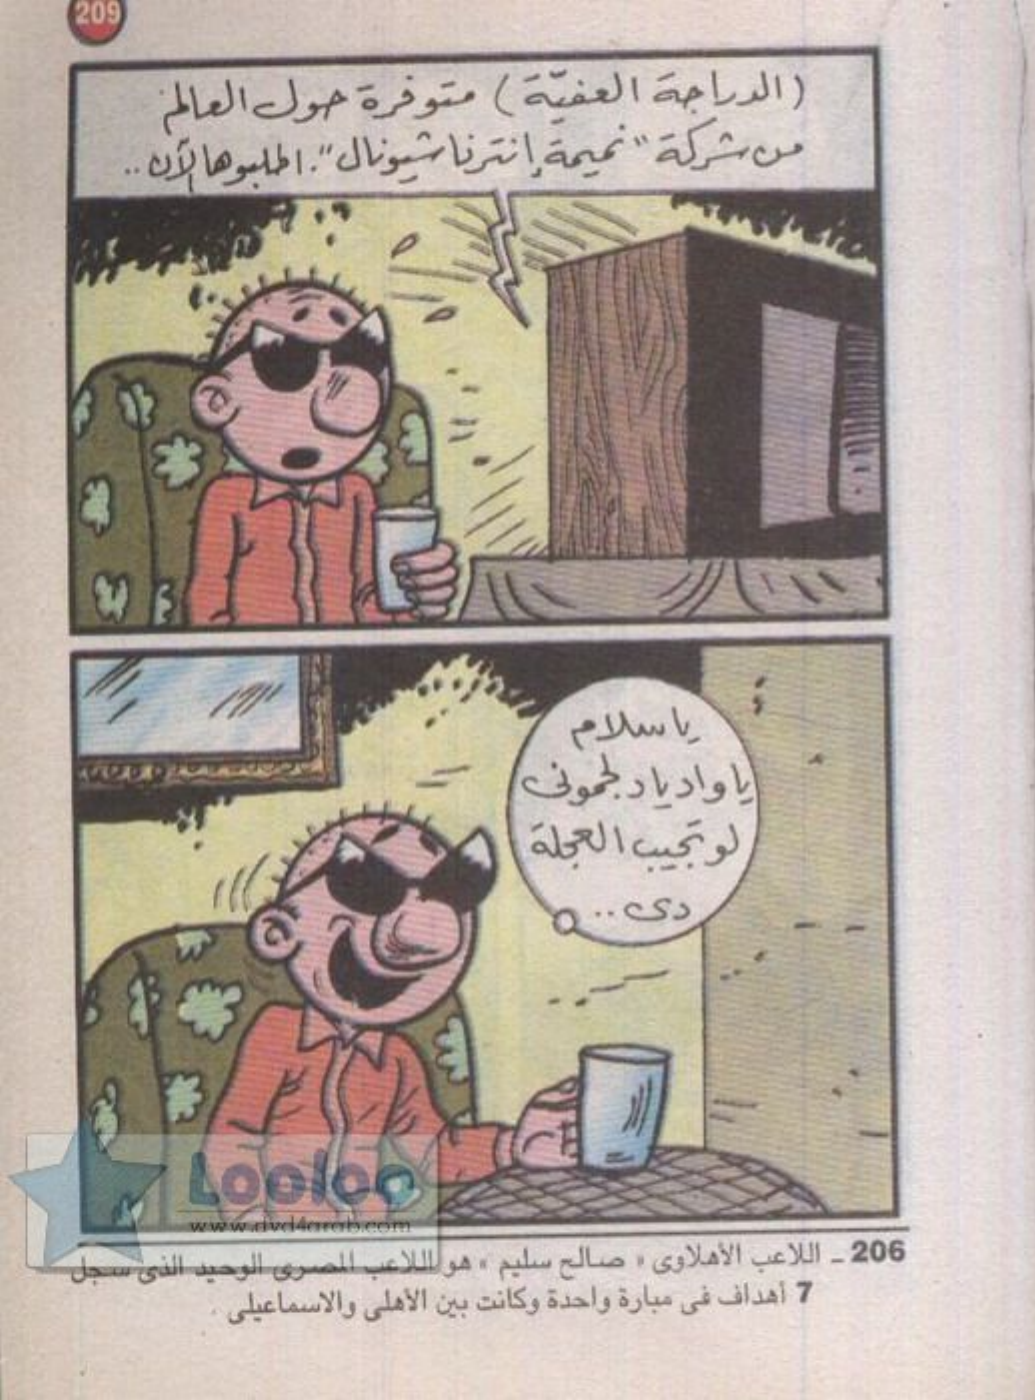 209
(الدراجة العفيّة) متوفرة حول العالم
من شركة "نميمة إنترناشيونال". اطلبوها الآن..
يا سلام
يا واد يا دلجمونى
لو تجيب العجلة
دى..
Looloo
www.dvd4arab.com
206 ـ اللاعب الأهلاوى « صالح سليم » هو اللاعب المصرى الوحيد الذى سجل
7 أهداف فى مبارة واحدة وكانت بين الأهلى والاسماعيلى .